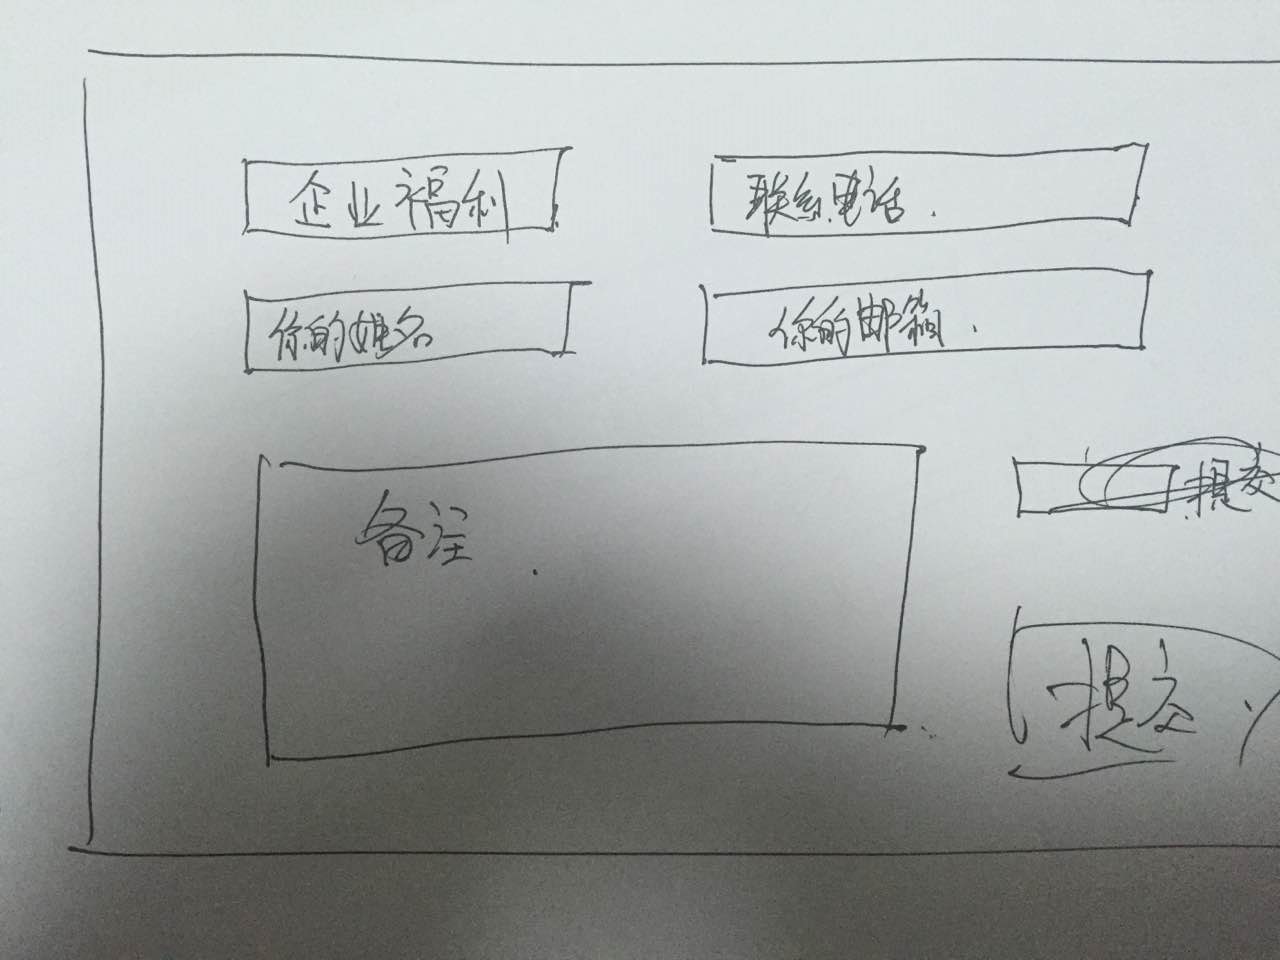 企业福利
联系电话.
你的姓名
你的邮箱.
备注.
提交
提交